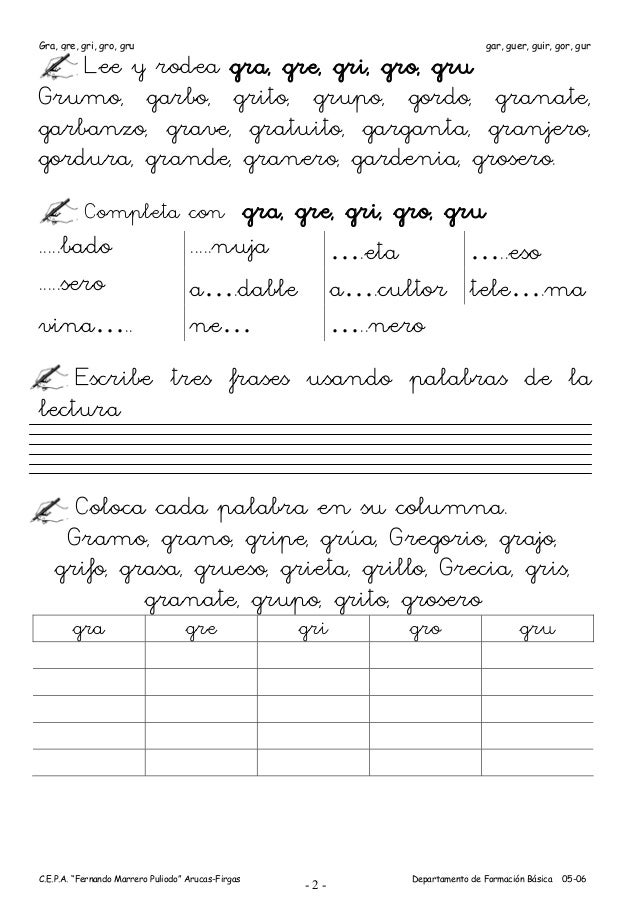 Gra, gre, gri, gro, gru gar, guer, guir, gor, gur
Lee y rodea gra, gre, gri, gro, gru
Grumo, garbo, grito, grupo, gordo, granate,
garbanzo, grave, gratuito, garganta, granjero,
gordura, grande, granero, gardenia, grosero.
Completa con gra, gre, gri, gro, gru
.....bado .....nuja ....eta .....eso
.....sero a....dable a....cultor tele....ma
vina..... ne... .....nero
Escribe tres frases usando palabras de la
lectura
Coloca cada palabra en su columna.
Gramo, grano, gripe, grúa, Gregorio, grajo,
grifo, grasa, grueso, grieta, grillo, Grecia, gris,
granate, grupo, grito, grosero
gra gre gri gro gru
C.E.P.A. "Fernando Marrero Puliodo" Arucas-Firgas - 2 - Departamento de Formación Básica 05-06